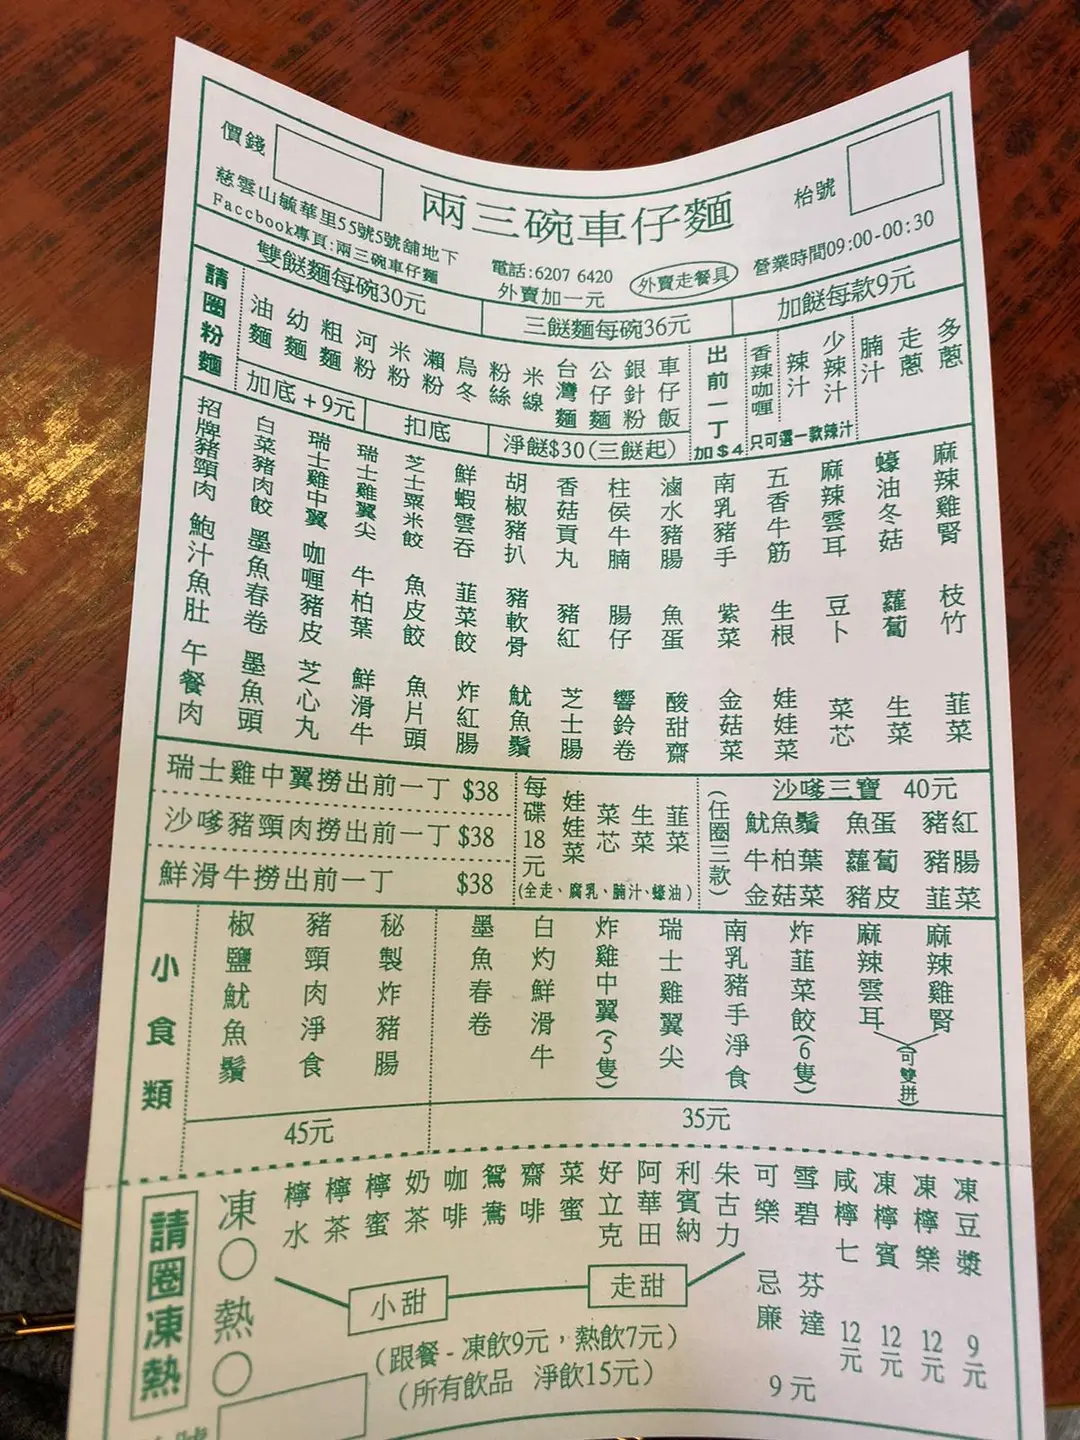 價錢
兩三碗車仔麵
枱號
慈雲山毓華里55號5號舖地下
Faccbook專頁:兩三碗車仔麵
電話:6207 6420
外賣加一元
外賣走餐具
營業時間09:00-00:30
雙餸麵每碗30元
三餸麵每碗36元
加餸每款9元
請圈粉麵
油麵 幼麵 粗麵 河粉 米粉 瀨粉 烏冬 粉絲 米線 台灣麵 公仔麵 銀針粉 車仔飯
出前一丁加$4
香辣咖喱 辣汁 少辣汁
只可選一款辣汁
腩汁 走蔥 多蔥
加底+9元
扣底
淨餸$30(三餸起)
招牌豬頸肉 白菜豬肉餃 瑞士雞中翼 瑞士雞翼尖 芝士粟米餃 鮮蝦雲吞 胡椒豬扒 香菇貢丸 柱侯牛腩 滷水豬腸 南乳豬手 五香牛筋 麻辣雲耳 蠔油冬菇 麻辣雞腎
鮑汁魚肚 墨魚春卷 咖喱豬皮 牛柏葉 魚皮餃 韮菜餃 豬軟骨 豬紅 腸仔 魚蛋 紫菜 生根 豆卜 蘿蔔 枝竹
午餐肉 墨魚頭 芝心丸 鮮滑牛 魚片頭 炸紅腸 魷魚鬚 芝士腸 響鈴卷 酸甜齋 金菇菜 娃娃菜 菜芯 生菜 韮菜
瑞士雞中翼撈出前一丁 $38
沙嗲豬頸肉撈出前一丁 $38
鮮滑牛撈出前一丁 $38
每碟18元
娃娃菜 菜芯 生菜 韮菜
(全走、腐乳、腩汁、蠔油)
(任圈三款)
沙嗲三寶 40元
魷魚鬚 魚蛋 豬紅
牛柏葉 蘿蔔 豬腸
金菇菜 豬皮 韮菜
小食類
椒鹽魷魚鬚 豬頸肉淨食 秘製炸豬腸
45元
墨魚春卷 白灼鮮滑牛 炸雞中翼(5隻) 瑞士雞翼尖 南乳豬手淨食 炸韮菜餃(6隻) 麻辣雲耳 麻辣雞腎
(可雙拼)
35元
請圈凍熱
凍○熱○
檸水 檸茶 檸蜜 奶茶 咖啡 鴛鴦 齋啡 菜蜜 好立克 阿華田 利賓納 朱古力
小甜 走甜
(跟餐-凍飲9元,熱飲7元)
(所有飲品 淨飲15元)
可樂 雪碧
忌廉 芬達
9元
咸檸七 12元
凍檸賓 12元
凍檸樂 12元
凍豆漿 9元